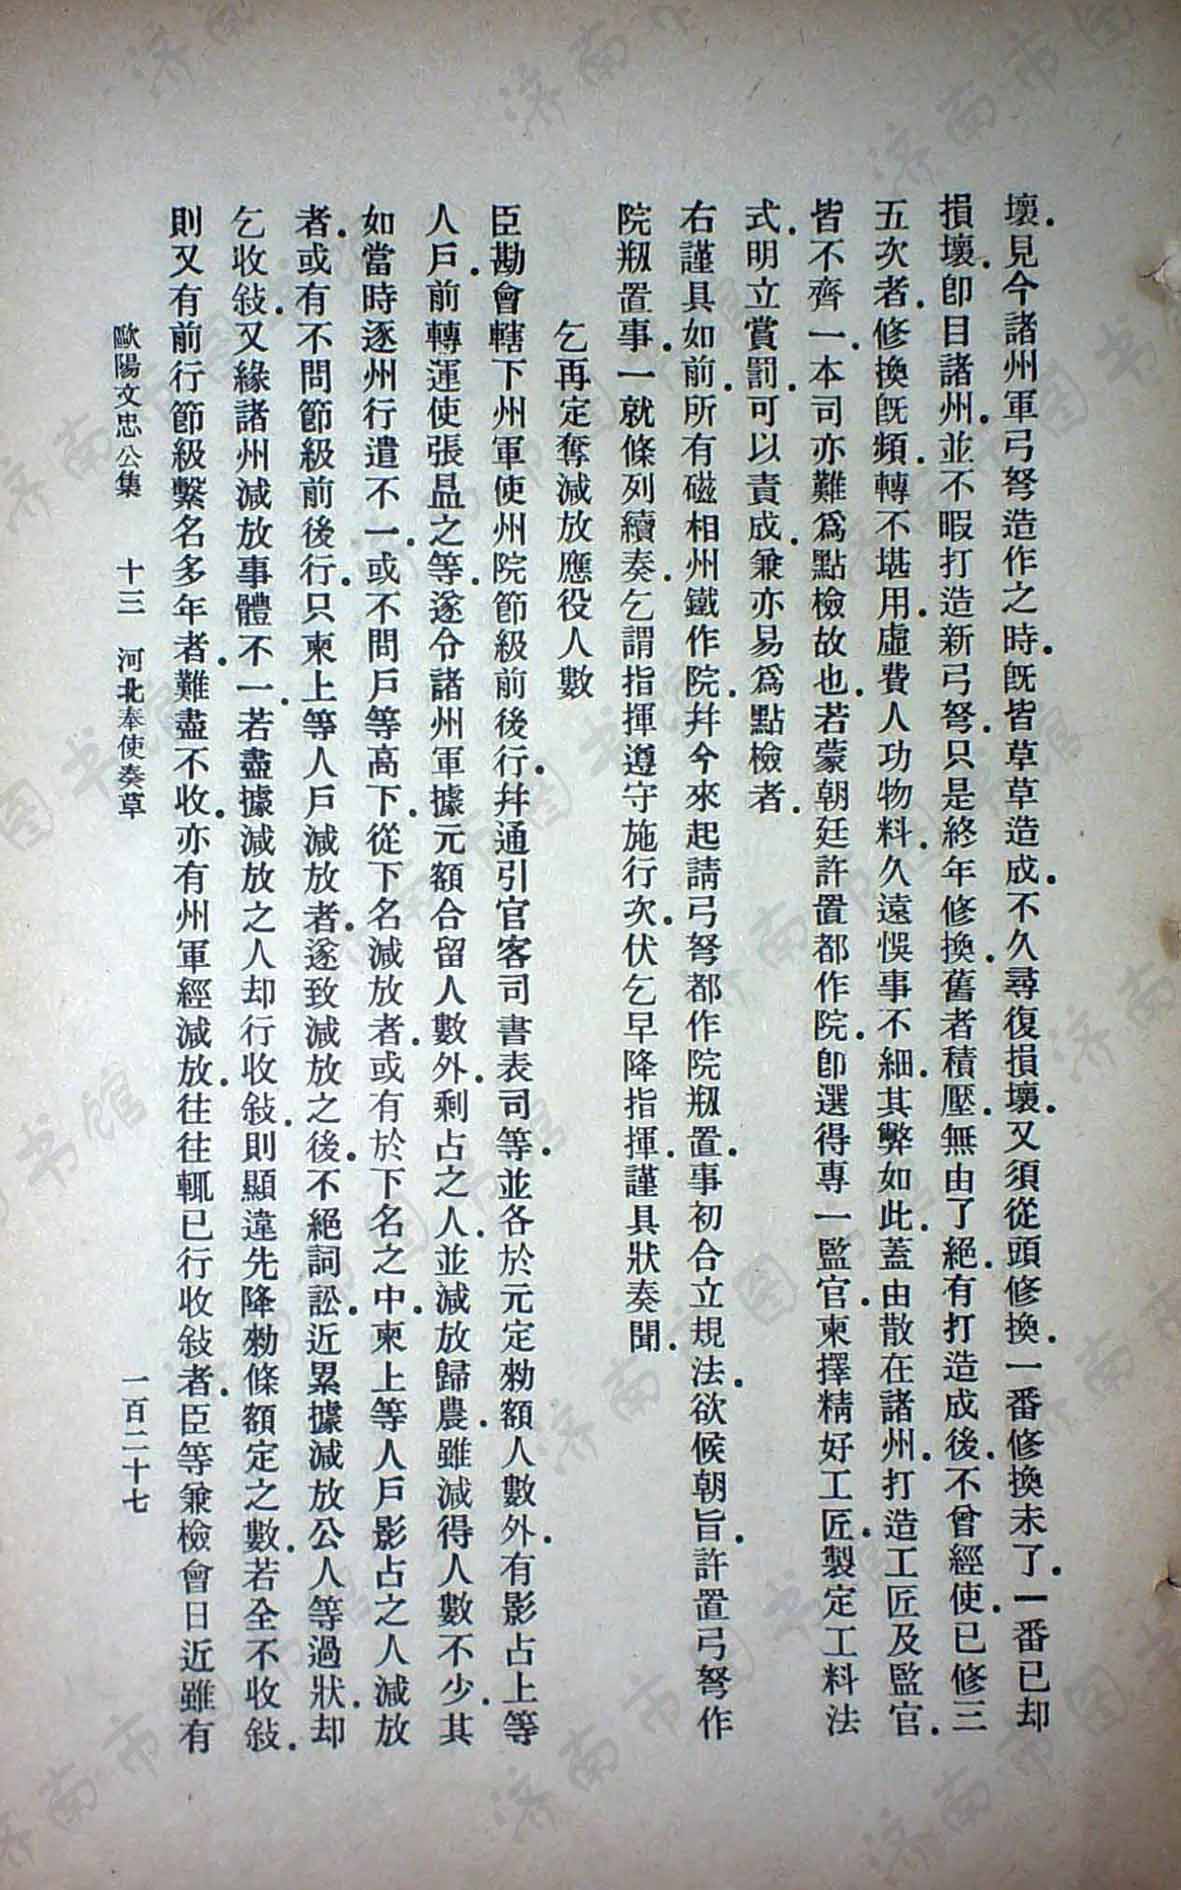 壞.見今諸州軍弓弩造作之時.旣皆草草造成.不久尋復損壞.又須從頭修換.一番修換未了.一番已却
損壞.卽目諸州.並不暇打造新弓弩.只是終年修換.舊者積壓.無由了絕.有打造成後.不曾經使.已修三
五次者.修換旣頻.轉不堪用.虛費人功物料.久遠悞事不細.其弊如此.蓋由散在諸州.打造工匠及監官.
皆不齊一.本司亦難爲點檢故也.若蒙朝廷許置都作院.卽選得專一監官.柬擇精好工匠.製定工料法
式.明立賞罰.可以責成.兼亦易爲點檢者.
右謹具如前.所有磁相州鐵作院.幷今來起請弓弩都作院剏置.事初合立規法.欲候朝旨.許置弓弩作
院剏置事.一就條列續奏.乞謂指揮遵守施行次.伏乞早降指揮.謹具狀奏聞.
乞再定奪減放應役人數
臣勘會轄下州軍使州院節級前後行.幷通引官客司書表司等.並各於元定勑額人數外.有影占上等
人戶.前轉運使張昷之等.遂分諸州軍據元額合留人數外.剩占之人.並減放歸農.雖減得人數不少.其
如當時逐州行遣不一.或不問戶等高下.從下名減放者.或有於下名之中.柬上等人戶影占之人減放
者.或有不問節級前後行.只柬上等人戶減放者.遂致減放之後.不絕詞訟.近累據減放公人等過狀.却
乞收敍.又緣諸州減放事體不一.若盡據減放之人却行收敍.則顯違先降勑條額定之數.若全不收敍.
則又有前行節級繫名多年者.難盡不收.亦有州軍經減放.往往輒已行收敍者.臣等兼檢會日近雖有
歐陽文忠公集 十三 河北奉使奏草 一百二十七
济南市图书馆